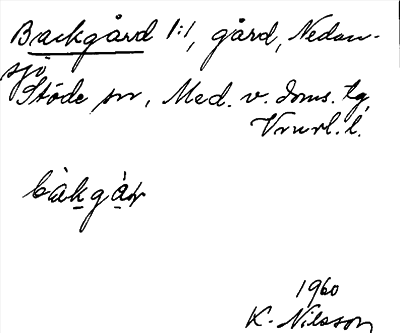 Backgård 1:1, gård, Nedan-
sjö
Stöde sn, Med. v. doms. tg,
Vrnrl. l.
bàkgàɽ
1960
K. Nilsson